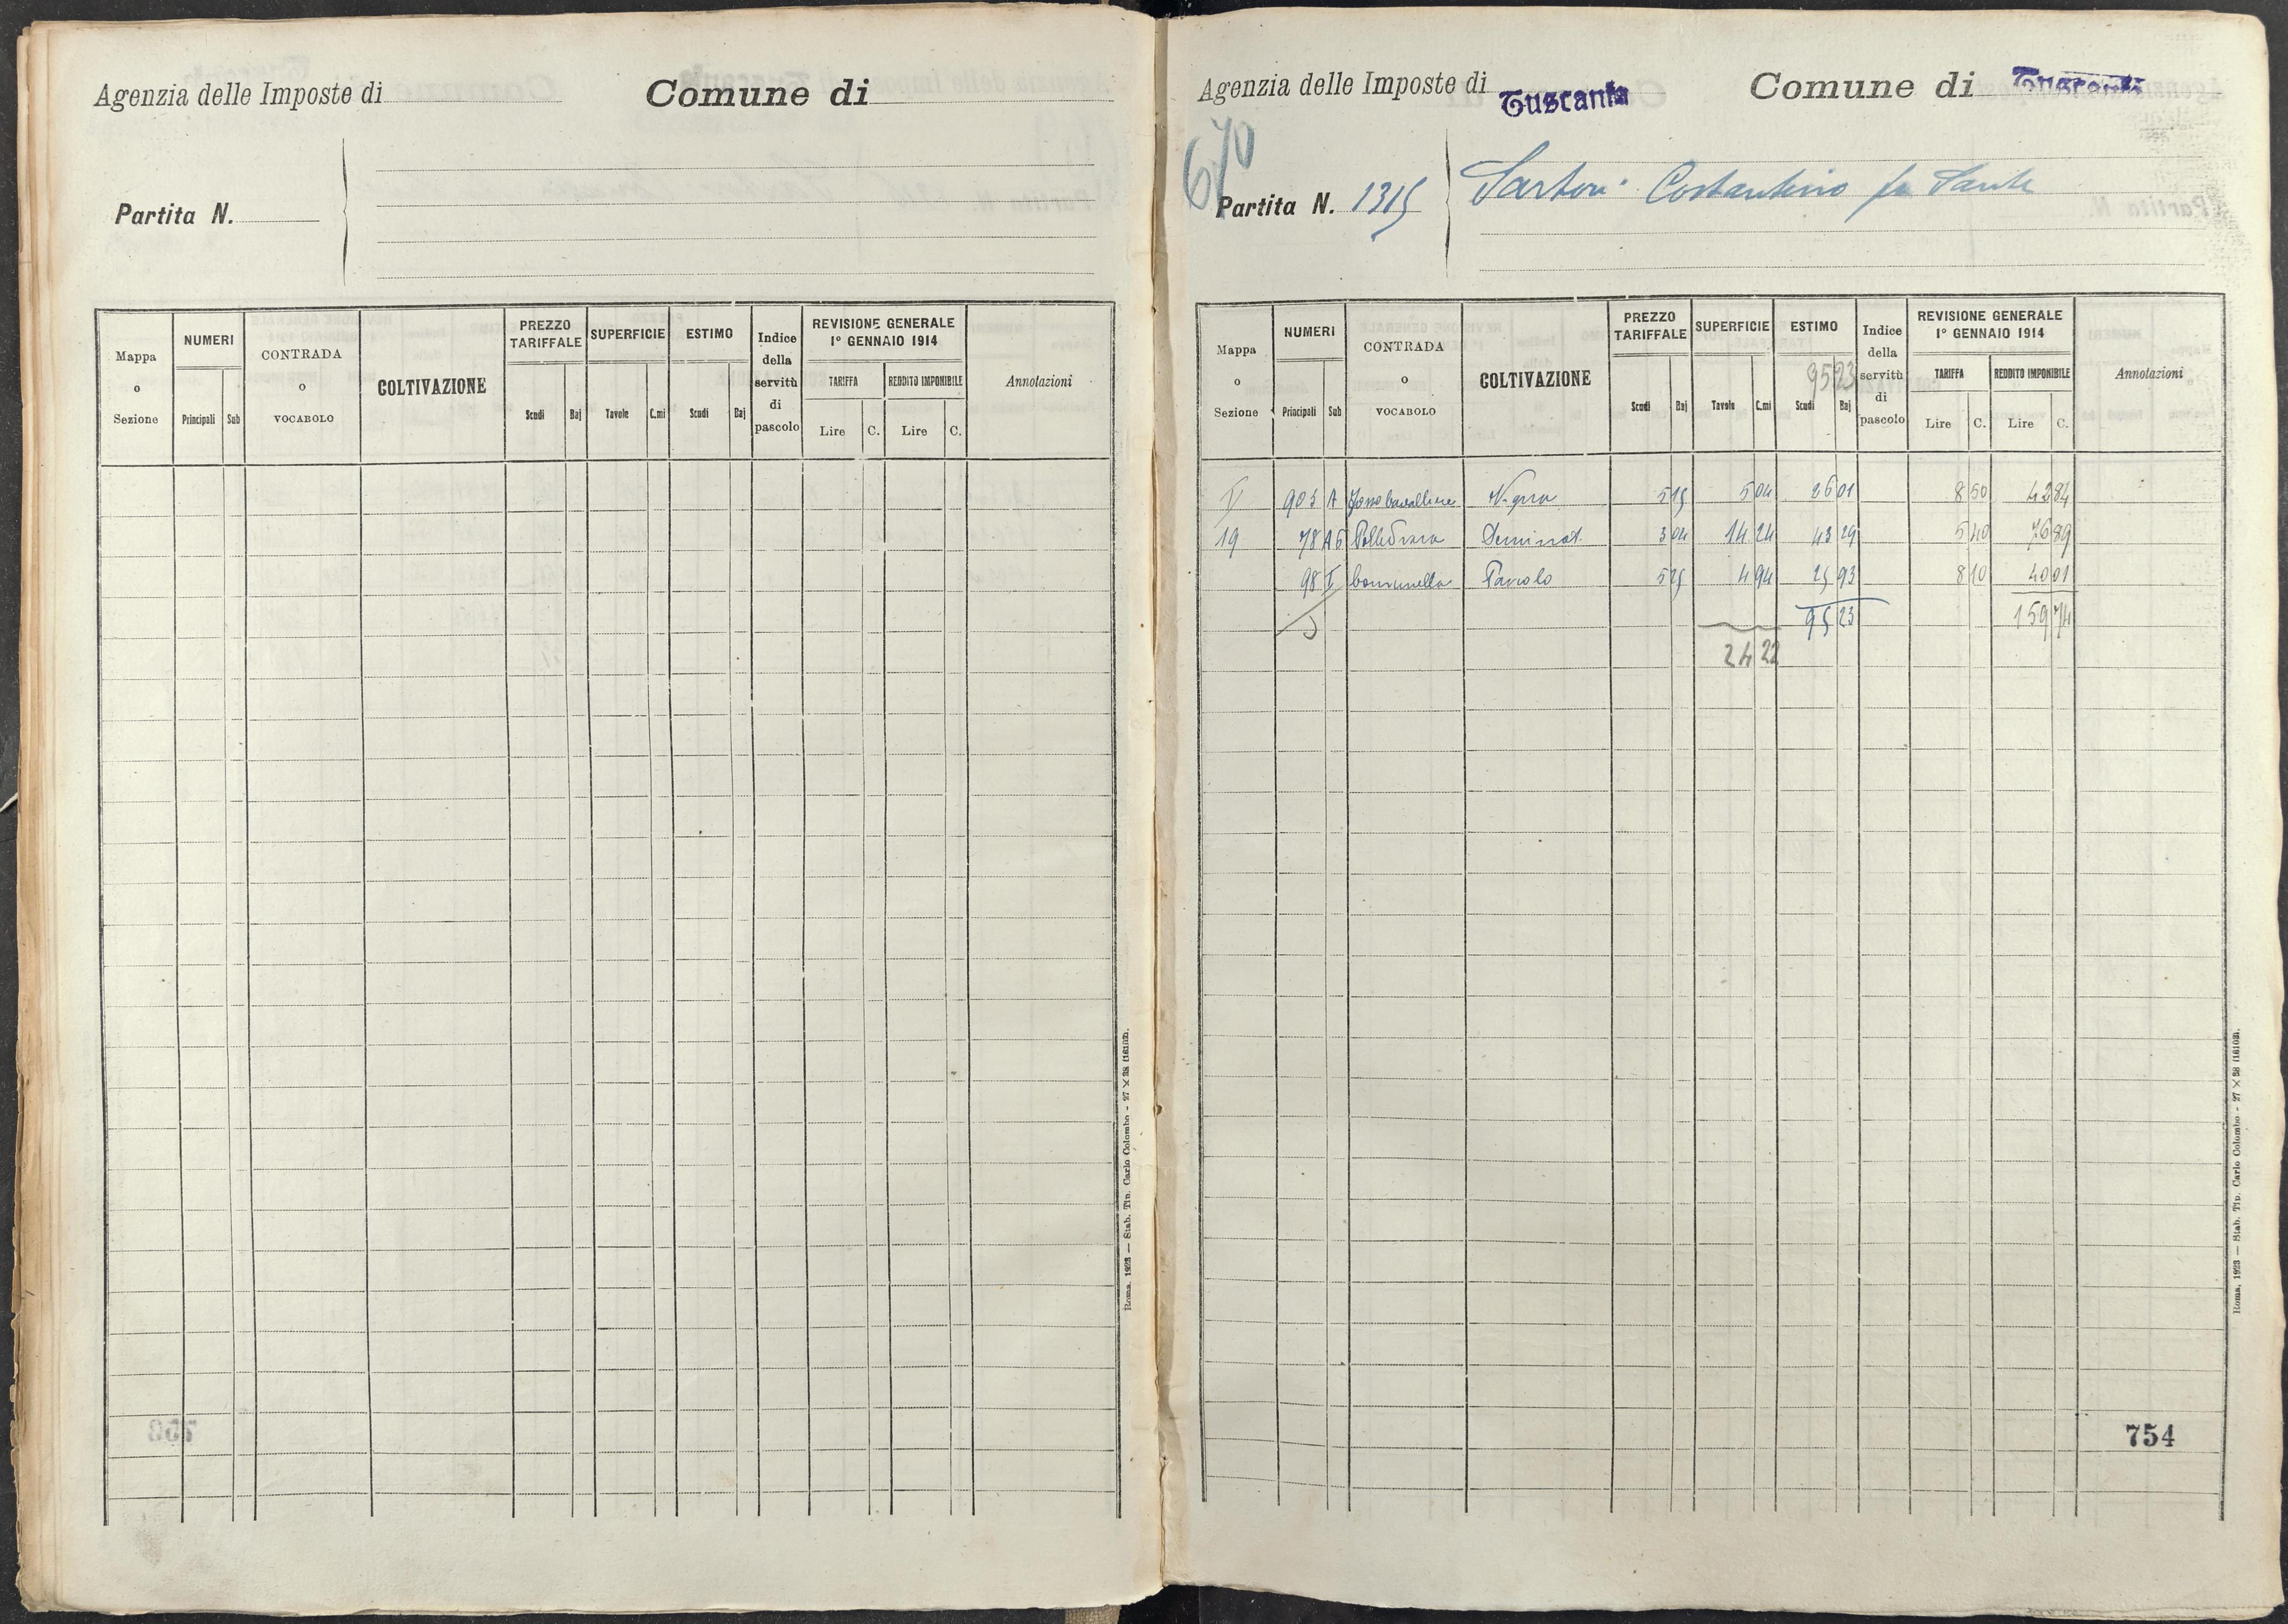 Agenzia delle Imposte di
Comune di
Partita N.
Mappa o Sezione
NUMERI
Principali Sub
CONTRADA o VOCABOLO
COLTIVAZIONE
PREZZO TARIFFALE
Scudi Baj
SUPERFICIE
Tavole C.mi
ESTIMO
Scudi Baj
Indice della servitù di pascolo
REVISIONE GENERALE
1° GENNAIO 1914
TARIFFA
Lire C.
REDDITO IMPONIBILE
Lire C.
Annotazioni
Roma, 1923 — Stab. Tip. Carlo Colombo - 27 × 38 (16103).
Agenzia delle Imposte di Tuscania
Comune di Tuscania
670
Partita N. 1315
Sartori Costantino fu Sante
Mappa o Sezione
NUMERI
Principali Sub
CONTRADA o VOCABOLO
COLTIVAZIONE
PREZZO TARIFFALE
Scudi Baj
SUPERFICIE
Tavole C.mi
ESTIMO
95 23
Scudi Baj
Indice della servitù di pascolo
REVISIONE GENERALE
1° GENNAIO 1914
TARIFFA
Lire C.
REDDITO IMPONIBILE
Lire C.
Annotazioni
903 A Vigna 5 15 5 04 26 01 8 50 42 84
19 78 Seminat. 3 04 14 24 43 29 5 40 76 89
98 I Comunella Pascolo 5 25 4 94 25 93 8 10 40 01
95 23 159 74
24 22
754
Roma, 1923 — Stab. Tip. Carlo Colombo - 27 × 38 (16103).